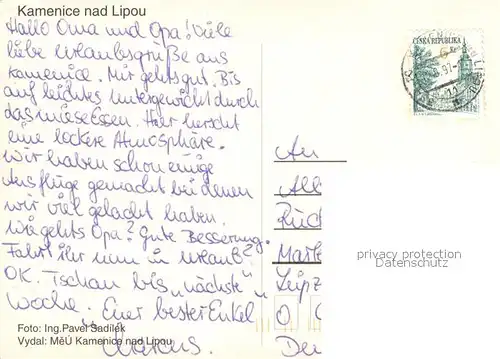 Kamenice nad Lipou
Hallo Oma und Opa! Viele
liebe Urlaubsgrüße aus
Kamenice. Mir gehts gut. Bis
auf leichtes Untergewicht durch
das miese Essen. Hier herscht
eine lockere Atmosphäre.
Wir haben schon einige
Ausflüge gemacht bei denen
wir viel gelacht haben.
Wie gehts Opa? Gute Besserung.
Fahrt ihr nun in Urlaub?
OK. Tschau bis „nächste"
Woche. Euer bester Enkel
Foto: Ing.Pavel Sadílek
Vydal: MěÚ Kamenice nad Lipou
Marcus.
ČESKÁ REPUBLIKA
An
All
Rück
Leipz
O
privacy protection
Datenschutz